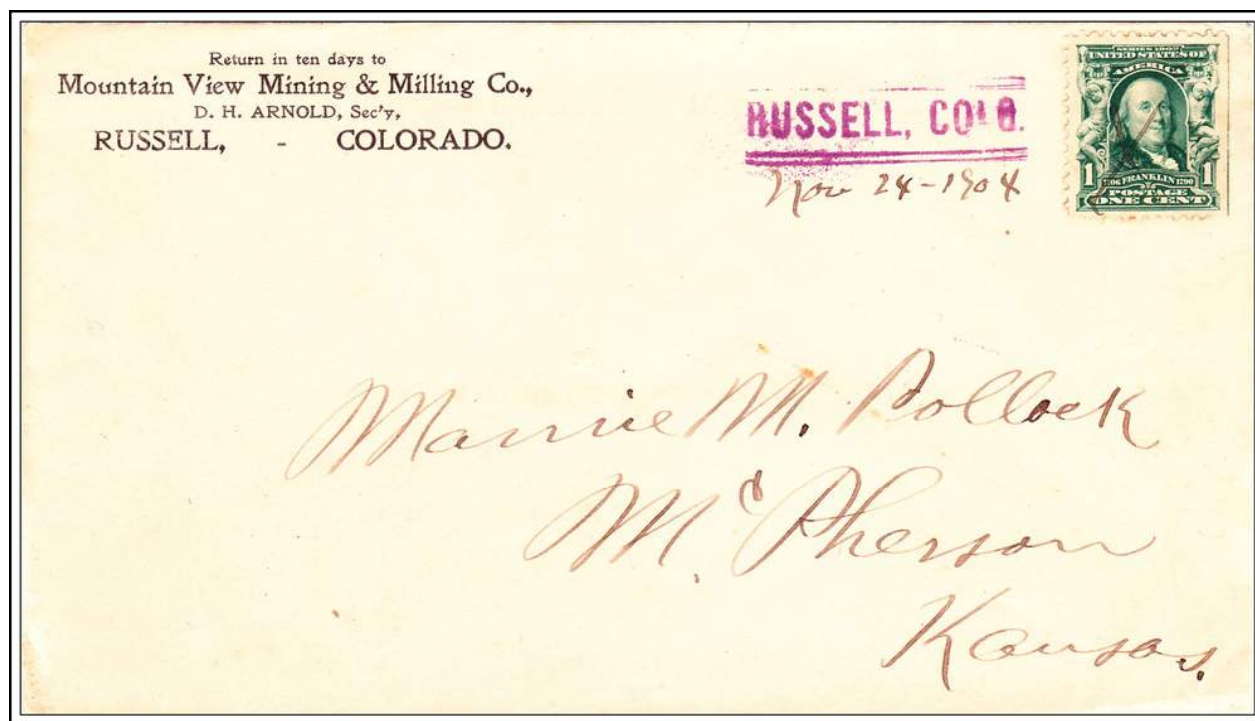 Return in ten days to
Mountain View Mining & Milling Co.,
D. H. ARNOLD, Sec'y,
RUSSELL, - COLORADO.
RUSSELL, COLO.
Nov 24-1904
SERIES 1902
UNITED STATES OF
AMERICA
1 1706 FRANKLIN 1790 1
POSTAGE
ONE CENT
Mannie M. Pollock
McPherson
Kansas.